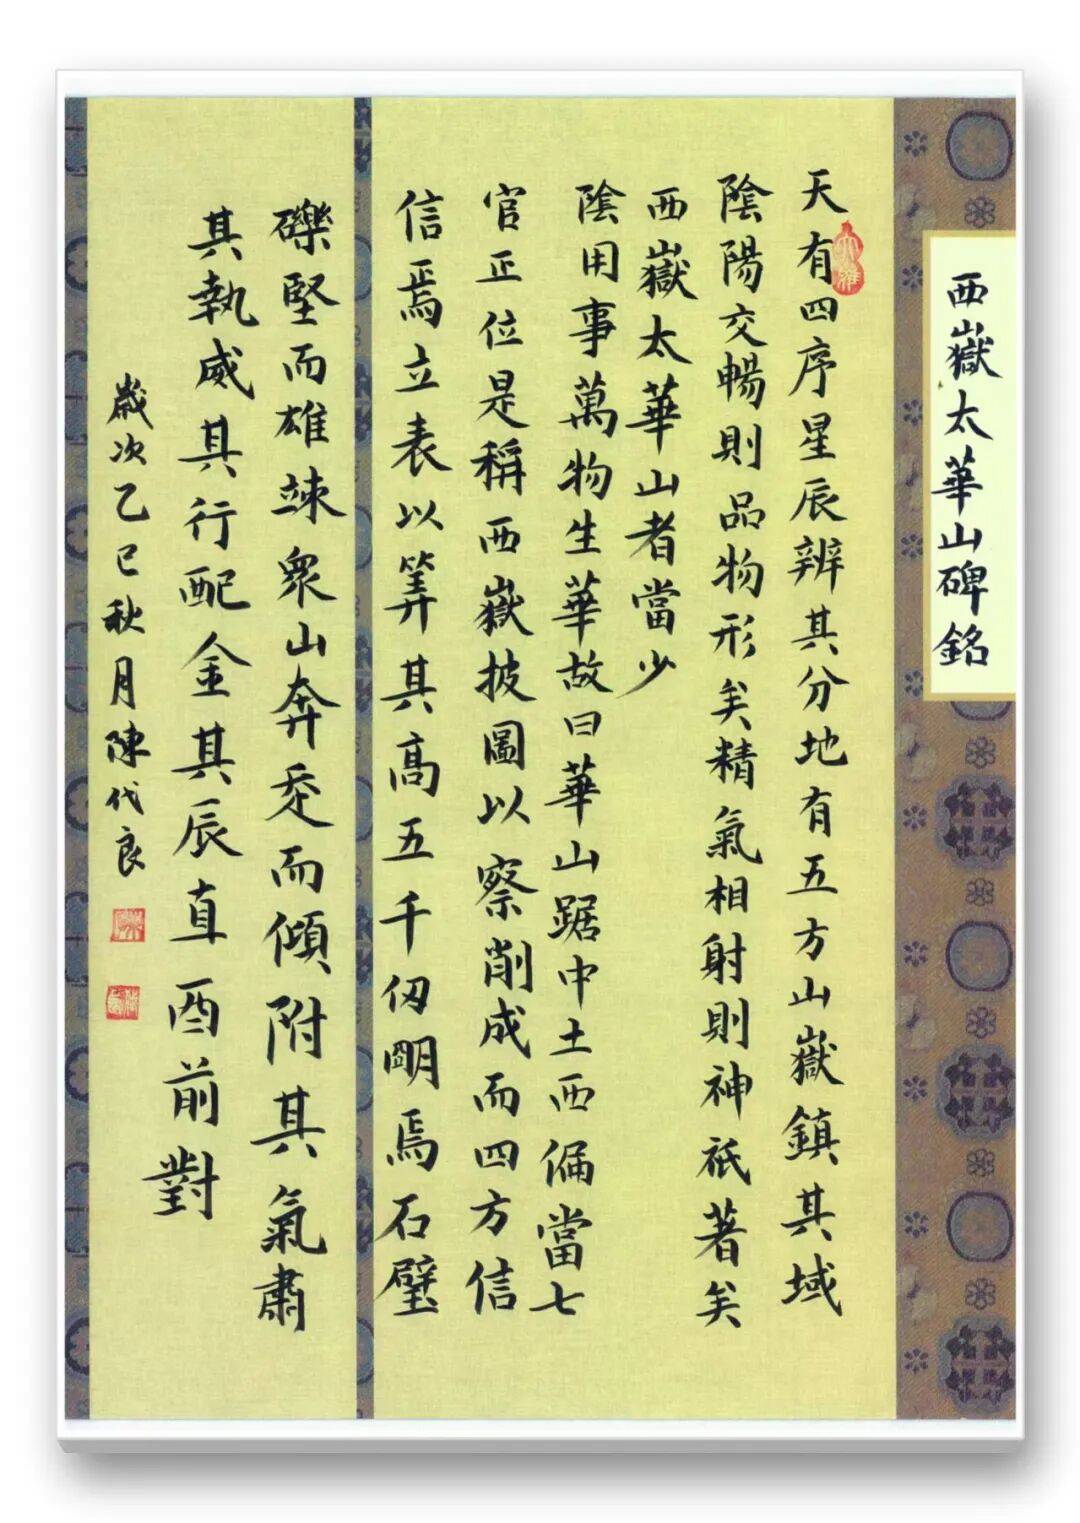 西嶽太華山碑銘
天有四序星辰辨其分地有五方山嶽鎮其域
陰陽交暢則品物形矣精氣相射則神祇著矣
西嶽太華山者當少
陰用事萬物生華故曰華山踞中土西偏當七
官正位是稱西嶽披圖以察削成而四方信
信焉立表以筭其高五千仞朙焉石璧
礫堅而雄竦衆山奔走而傾附其氣肅
其執威其行配金其辰直酉前對
歲次乙巳秋月陳代良
大雅